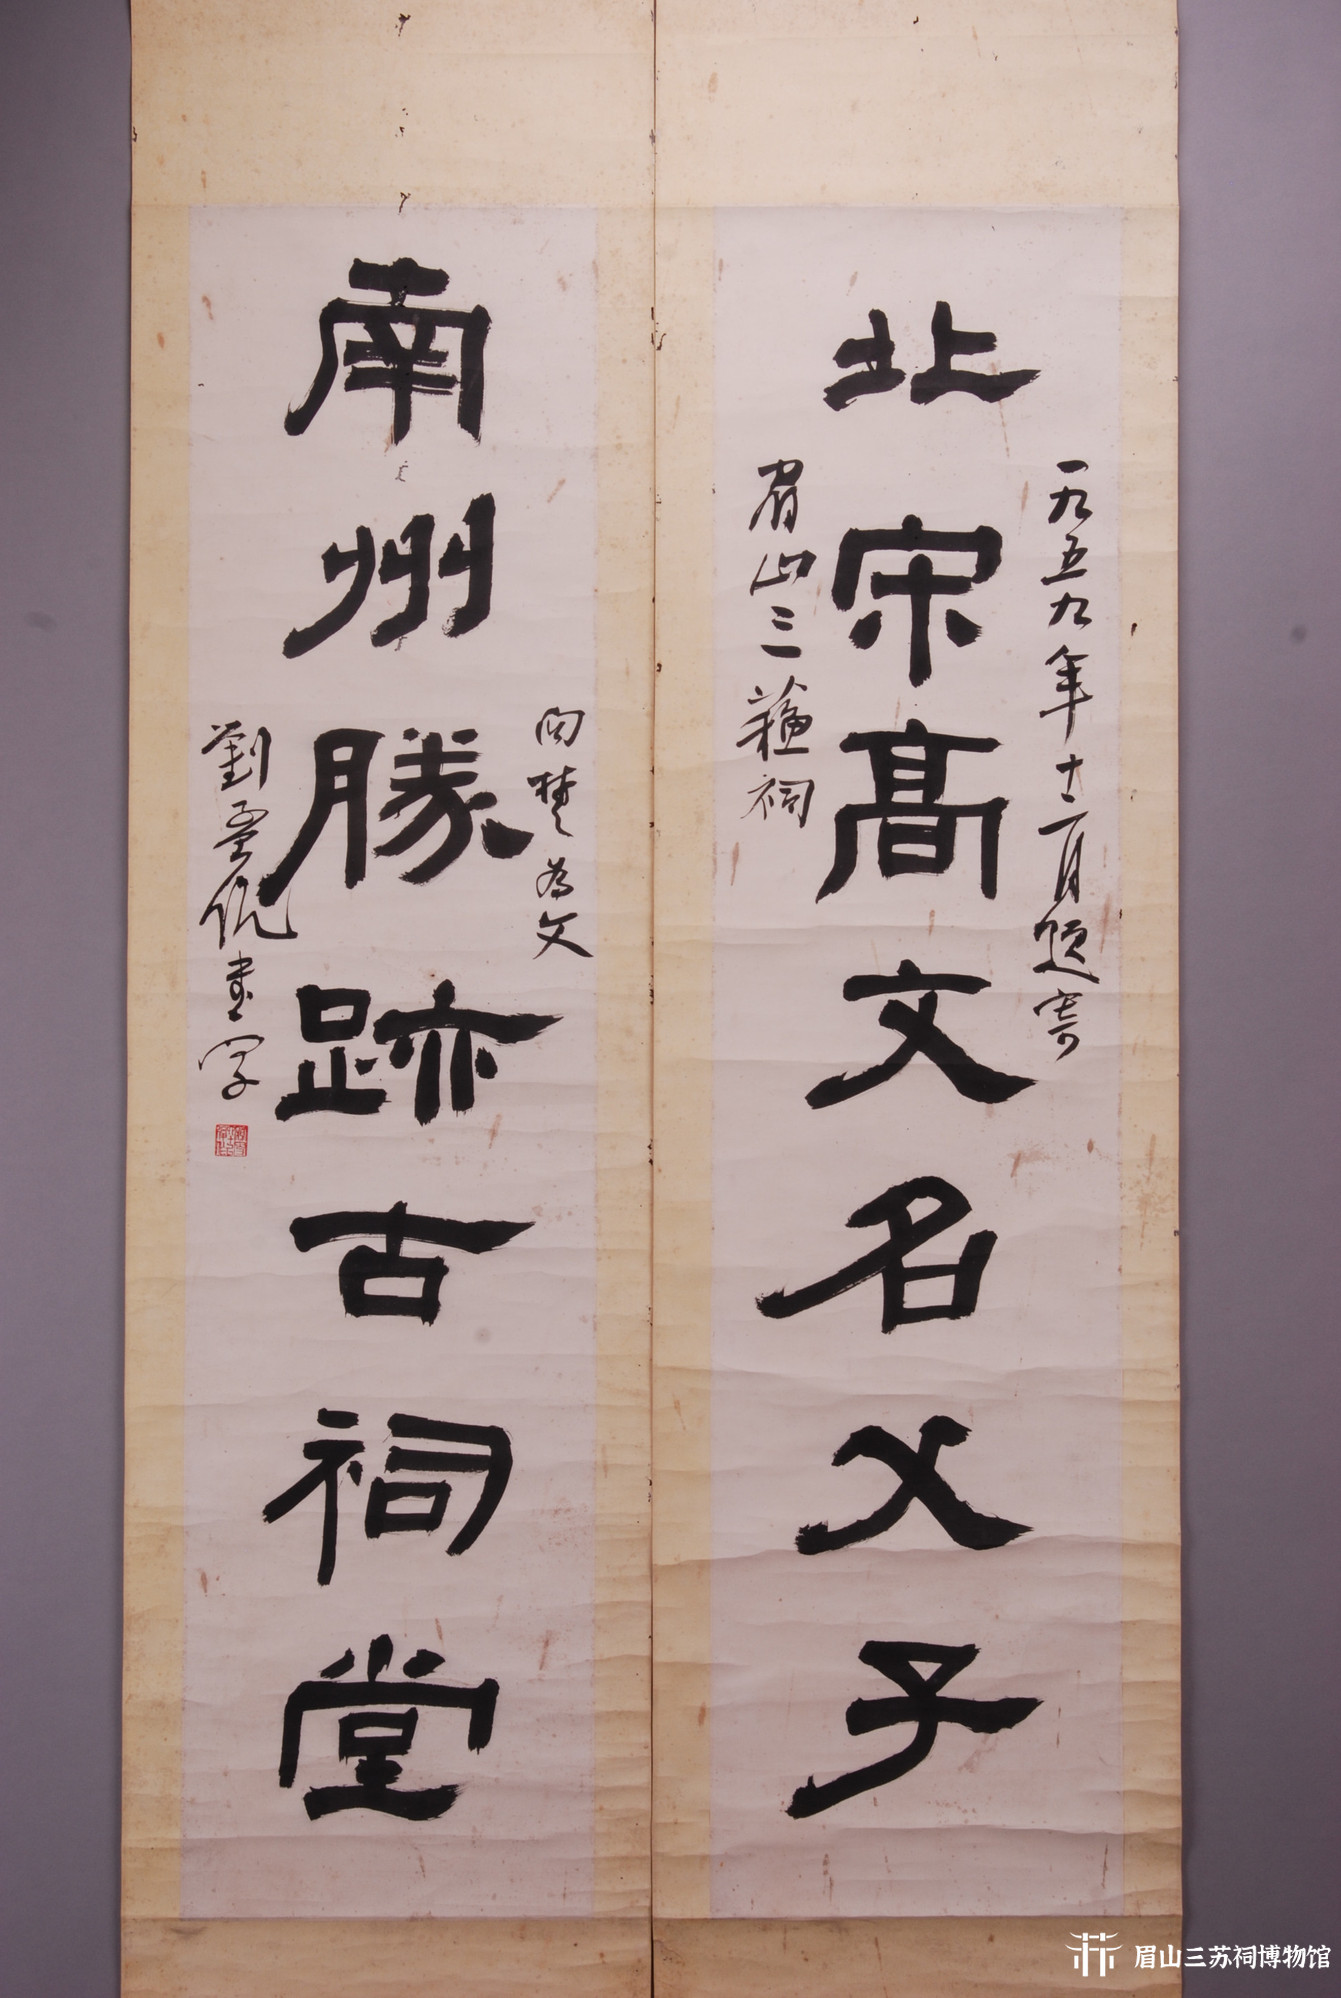 北宋高文名父子
一九五九年十二月题寄
眉山三蘇祠
南州勝跡古祠堂
向楚为文
劉孟伉書字
眉山三苏祠博物馆